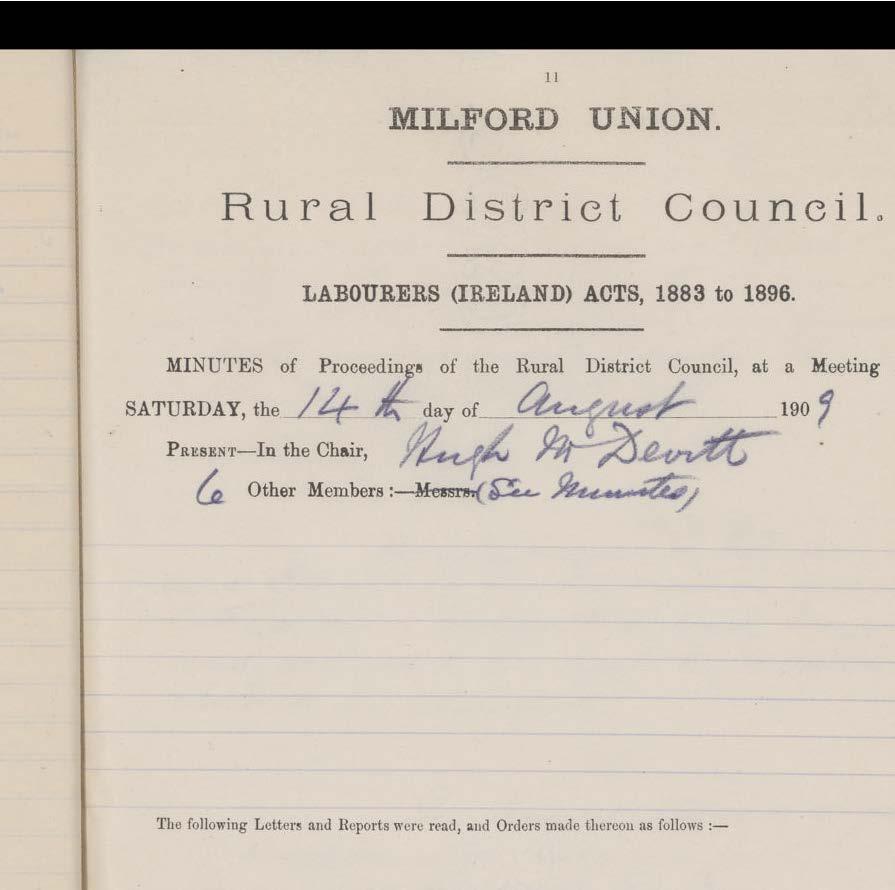 11
MILFORD UNION.
Rural District Council.
LABOURERS (IRELAND) ACTS, 1883 to 1896.
MINUTES of Proceedings of the Rural District Council, at a Meeting
SATURDAY, the 14th day of August 1909
PRESENT—In the Chair, Hugh McDevitt
6 Other Members :—Messrs. (See Minutes)
The following Letters and Reports were read, and Orders made thereon as follows :—